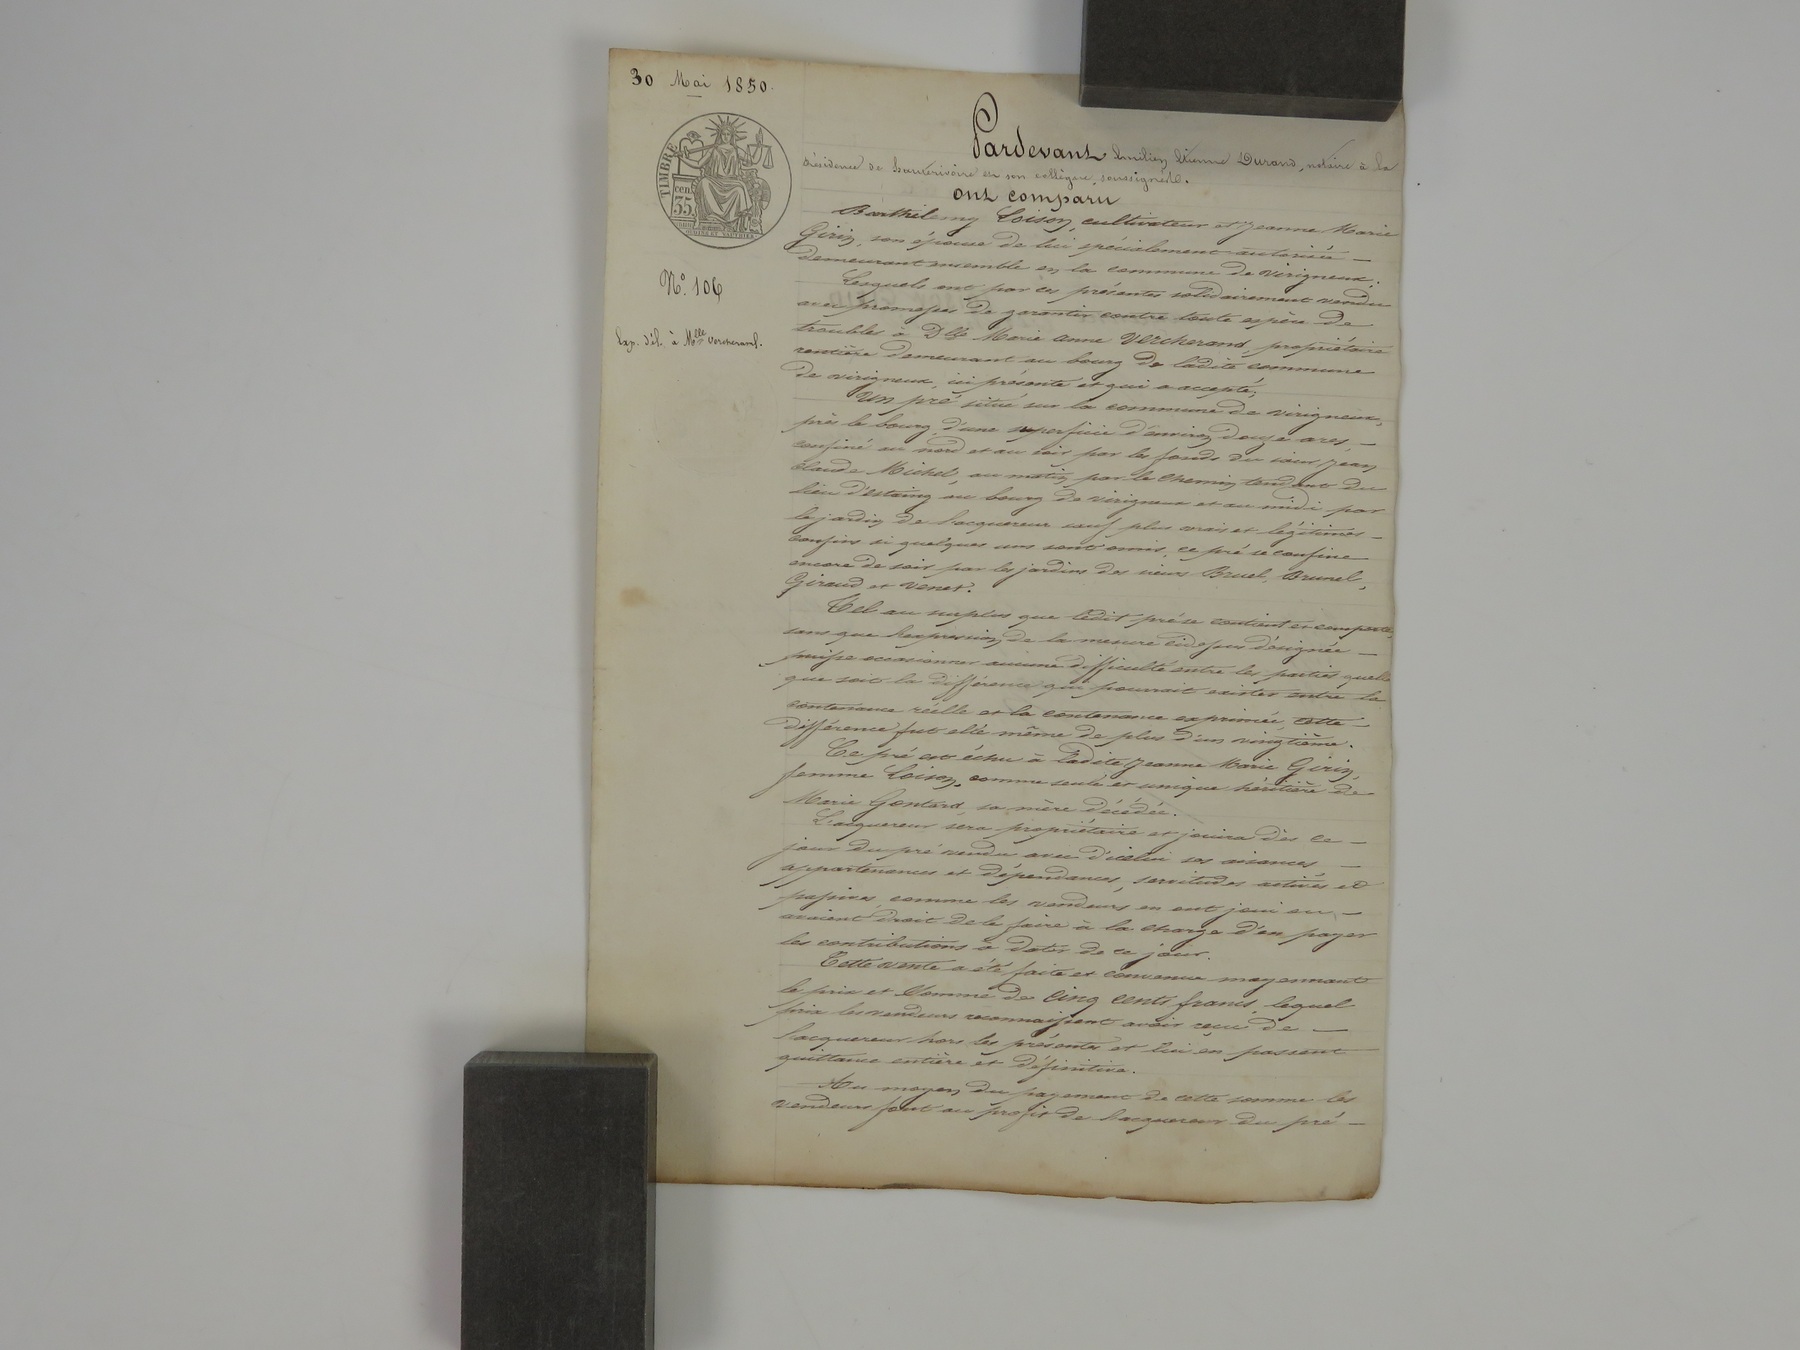 30 Mai 1850.
TIMBRE
cen.
35.
N° 106
Exp. dél. à Mlle Vercherand.
Pardevant Emilien Etienne Durand, notaire à la
résidence de et son collègue, soussignés.
ont comparu
Barthélemy Loison, cultivateur et Jeanne Marie
Girin, son épouse de lui spécialement autorisée —
demeurant ensemble en la commune de virigneux.
Lesquels ont par ces présentes solidairement vendu
avec promesses de garantir contre toute espèce de
troubles à Dlle Marie Anne Vercherand, propriétaire
rentière demeurant au bourg de ladite commune
de virigneux, ici présente et qui a accepté,
Un pré situé sur la commune de virigneux,
près le bourg, d'une superficie d'environ douze ares —
confiné au nord et au soir par les fonds du sieur Jean
Claude Michel, au matin par le chemin tendant du
lieu d'estaing au bourg de virigneux et au midi par
le jardin de l'acquereur sauf plus vrais et légitimes —
confins si quelques uns sont omis, ce pré se confine
encore de soir par les jardins des sieurs Bruel, Brunel,
Giraud et Venet.
Tel au surplus que ledit pré se contient et comporte,
sans que l'expression de la mesure cidessus désignée —
puisse occasionner aucune difficulté entre les parties quelle
que soit la différence qui pourrait exister entre la
contenance réelle et la contenance exprimée, cette —
différence fut elle même de plus d'un vingtième.
Ce pré est échu à ladite Jeanne Marie Girin
femme Loison, comme seule et unique héritière de
Marie Gontard sa mère décédée.
L'acquereur sera propriétaire et jouira dès ce —
jour du pré vendu avec d'icelui ses aisances —
appartenances et dépendances, servitudes actives et
passives, comme les vendeurs en ont joui ou —
avaient droit de le faire à la charge d'en payer
les contributions à dater de ce jour.
Cette vente a été faite et convenue moyennant
le prix et somme de cinq cents francs, lequel
prix les vendeurs reconnaissent avoir reçu de —
l'acquereur hors les présentes et lui en passent
quittance entière et définitive.
Au moyen du payement de cette somme les
vendeurs font au profit de l'acquereur du pré —